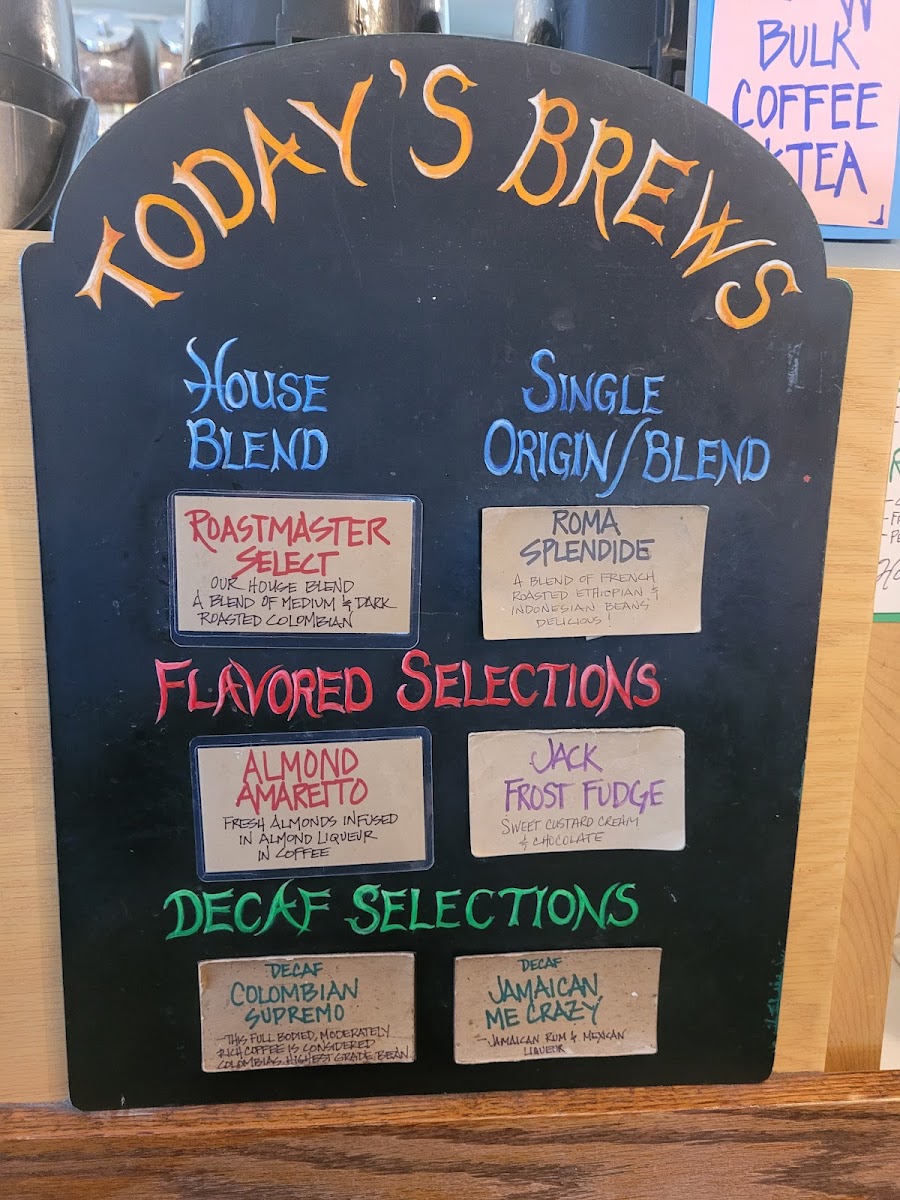 TODAY'S BREWS
BULK
COFFEE
TEA
HOUSE
BLEND
SINGLE
ORIGIN/BLEND
ROASTMASTER
SELECT
OUR HOUSE BLEND
A BLEND OF MEDIUM & DARK
ROASTED COLOMBIAN
ROMA
SPLENDIDE
A BLEND OF FRENCH
ROASTED ETHIOPIAN &
INDONESIAN BEANS
DELICIOUS!
FLAVORED SELECTIONS
ALMOND
AMARETTO
FRESH ALMONDS INFUSED
IN ALMOND LIQUEUR
IN COFFEE
JACK
FROST FUDGE
SWEET CUSTARD CREAM
& CHOCOLATE
DECAF SELECTIONS
DECAF
COLOMBIAN
SUPREMO
—THIS FULL BODIED, MODERATELY
RICH COFFEE IS CONSIDERED
COLOMBIAS HIGHEST GRADE BEAN
DECAF
JAMAICAN
ME CRAZY
—JAMAICAN RUM & MEXICAN
LIQUEUR